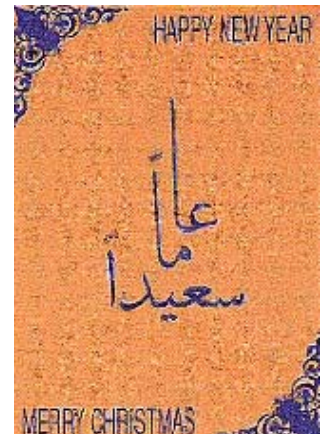 HAPPY NEW YEAR
عاماً
سعيداً
MERRY CHRISTMAS